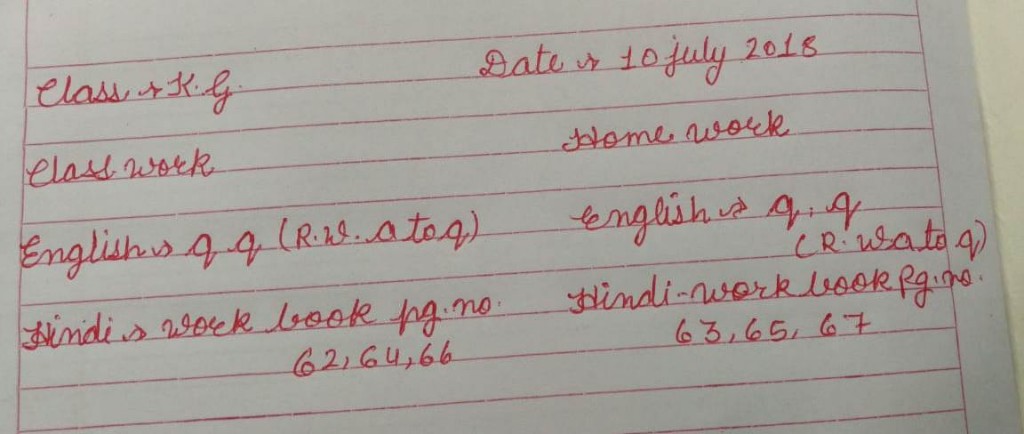 Class → K.G. Date → 10 july 2018
Class work Home work
English → q q (R.W. a to q) English → q, q
(R. W a to q)
Hindi → work book pg. no. Hindi - work book Pg. no.
62, 64, 66 63, 65, 67